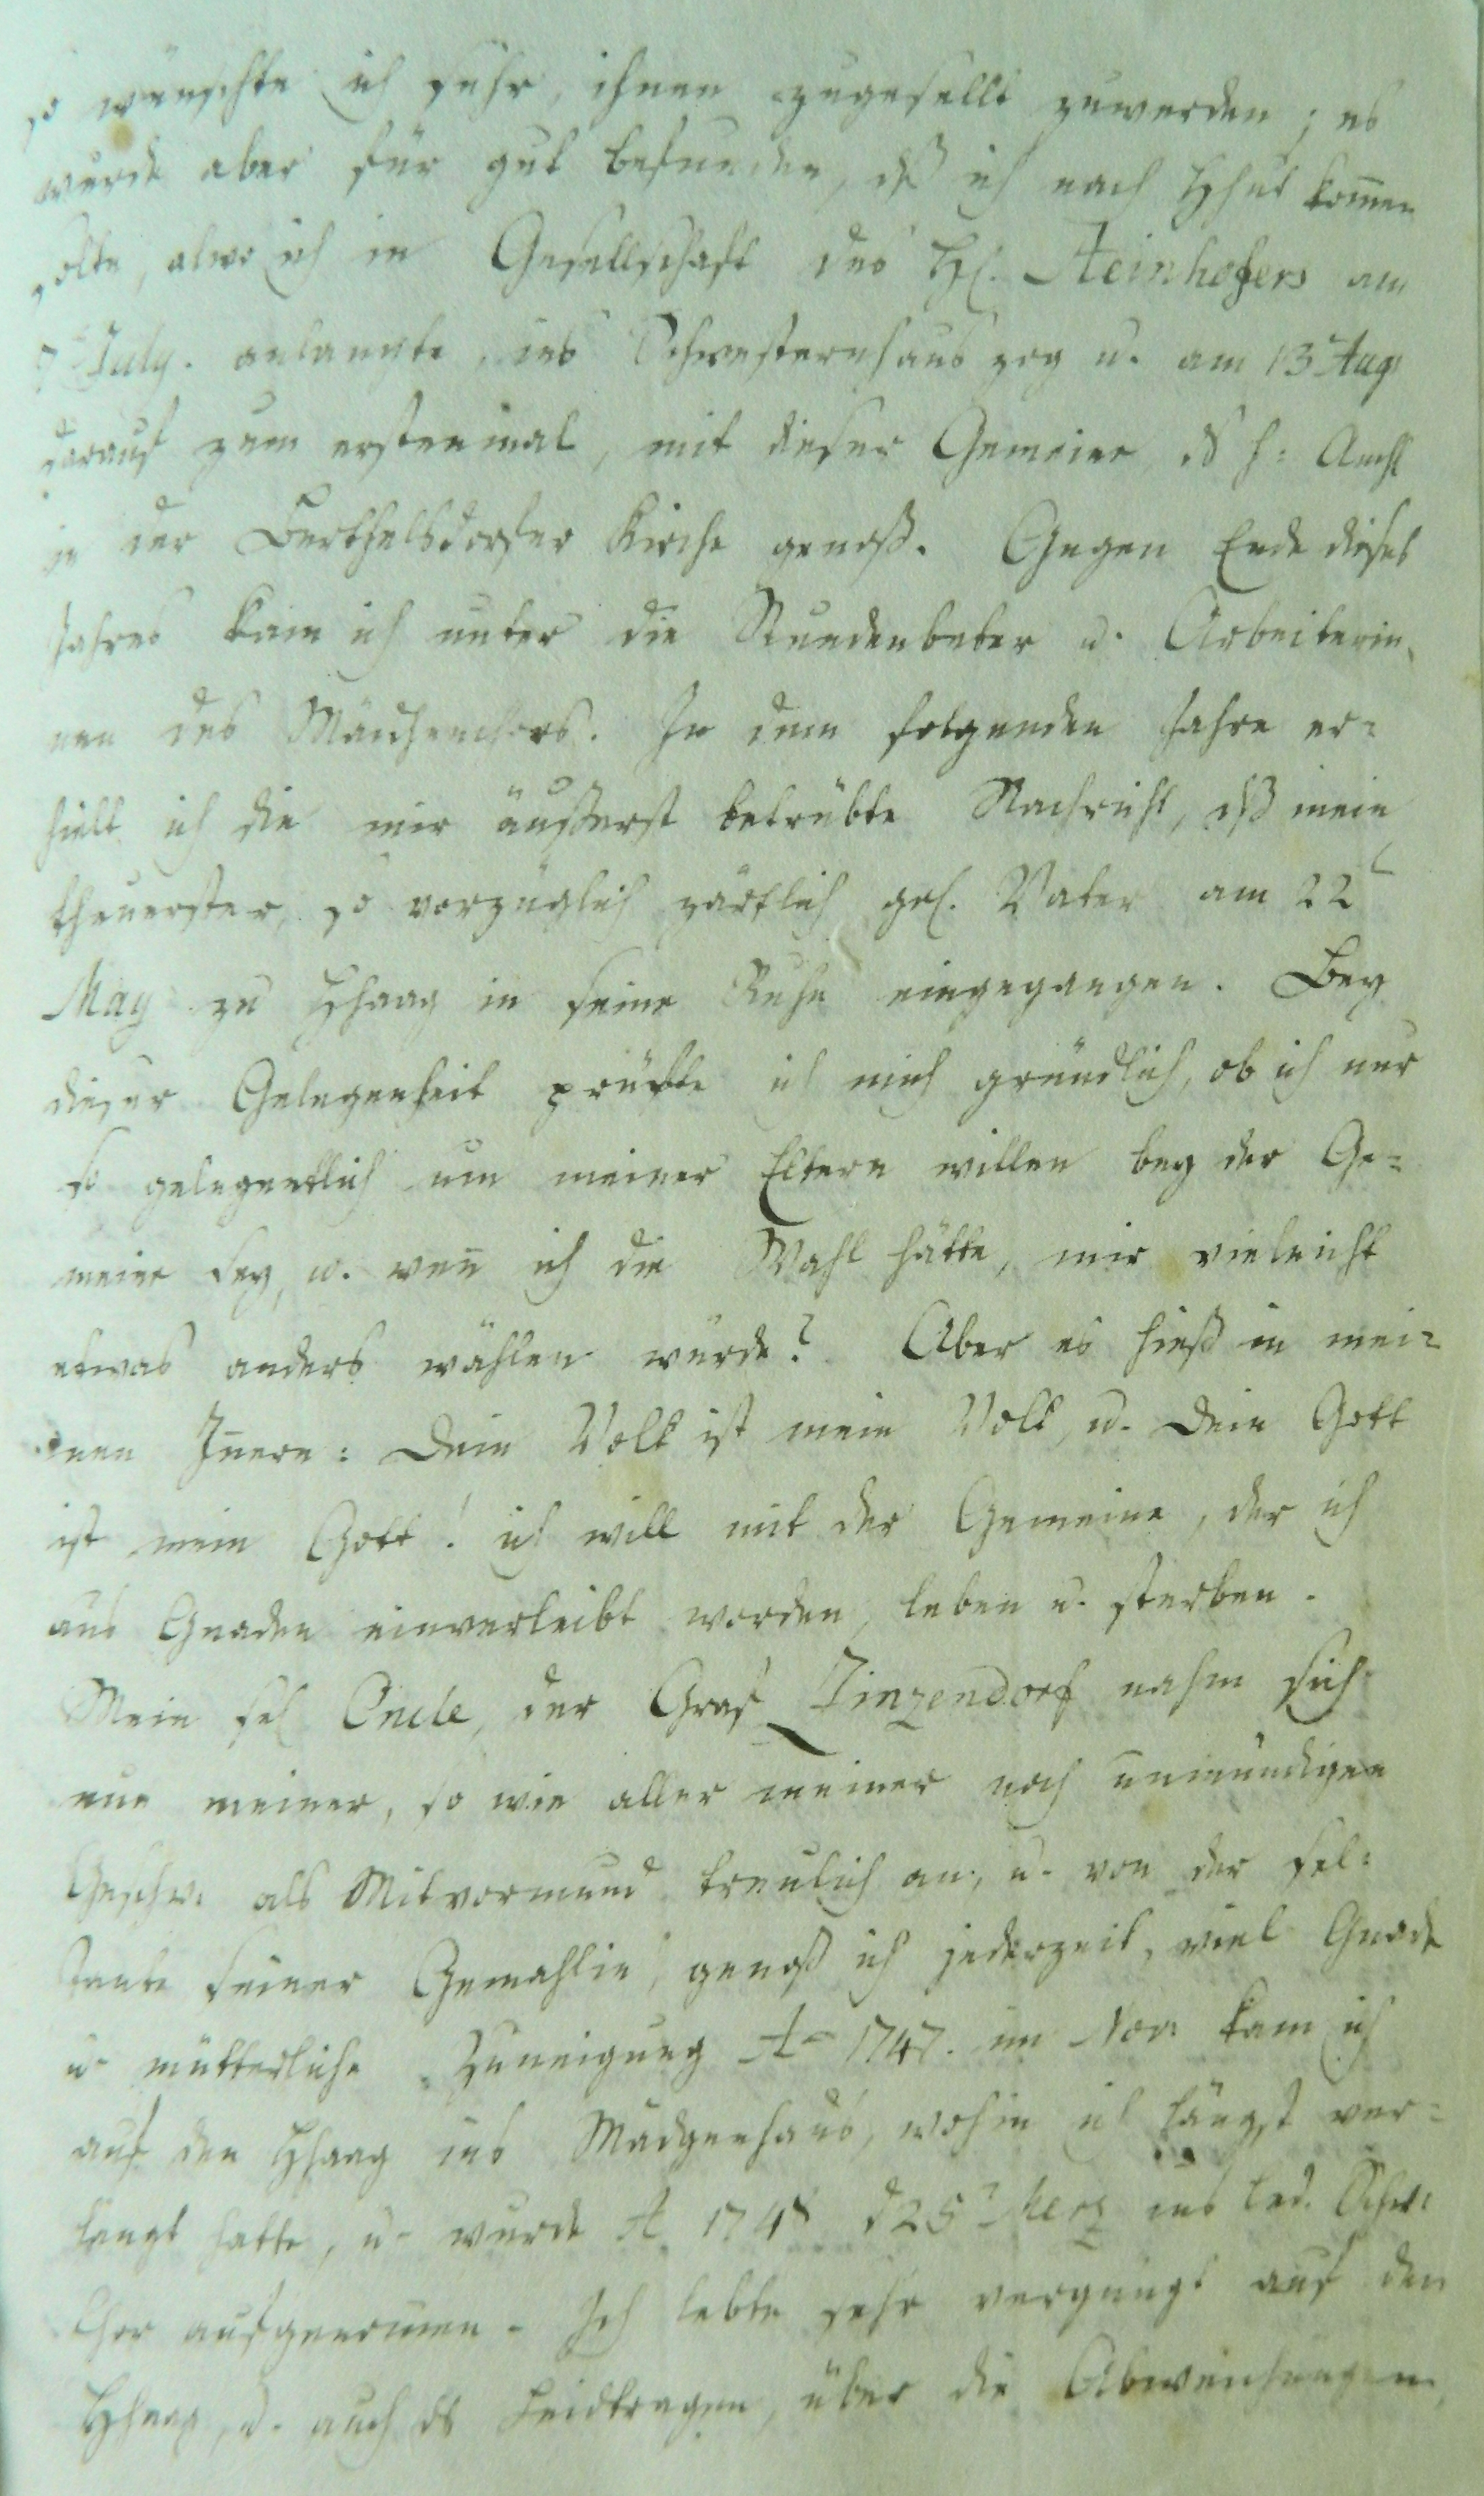 so wünschte ich sehr, ihnen zugesellt zuwerden; es
wurde aber für gut befunden, dß ich nach Hhut kom̄en
solte, alwo ich in Gesellschaft des H. Steinhofers am
7 July. anlangte, ins Schwesternhaus zog u. am 13 Aug
darauf zum erstenmal, mit dieser Gemeine ds h: Amhl
in der Berthelsdorfer Kirche genoß. Gegen Ende dieses
Jahres kam ich unter die Stundenbeter u. Arbeiterin,
nen des Mädchenchors. In dem folgenden Jahre er=
hielt ich die mir äußerst betrübte Nachricht, dß mein
theuerster, so vorzüglich zärtlich gel. Vater am 22t
May zu Hhaag in seine Ruhe eingegangen. Bey
dieser Gelegenheit prüfte ich mich gründlich, ob ich nur
so gelegentlich um meiner Eltern willen bey der Ge=
meine sey, u. wen̄ ich die Wahl hätte, mir vieleicht
etwas anders wählen würde? Aber es hieß in mei=
nen In̄ern: Dein Volk ist mein Volk, u. Dein Gott
ist mein Gott! ich will mit der Gemeine, der ich
aus Gnaden einverleibt worden, leben u. sterben.
Mein sel Oncle, der Graf Zinzendorf nahm sich
nun meiner, so wie aller meiner noch unmündigen
Geschw: als Mitvormund treulich an, u. von der sel:
Tante seiner Gemahlin, genoß ich jederzeit, viel Gnade
u. mütterliche Zuneigung Ao 1747. im Nov: kam ich
auf den Hhaag ins Mädgenhaus, wohin ich längst ver=
langt hatte, u. wurde A 1748 d 25t Merz ins led. Schw:
Chor aufgenom̄en. Ich lebte sehr vergnügt auf den
Hhaag, u. auch ds Leidtragen, über die Abweichungen